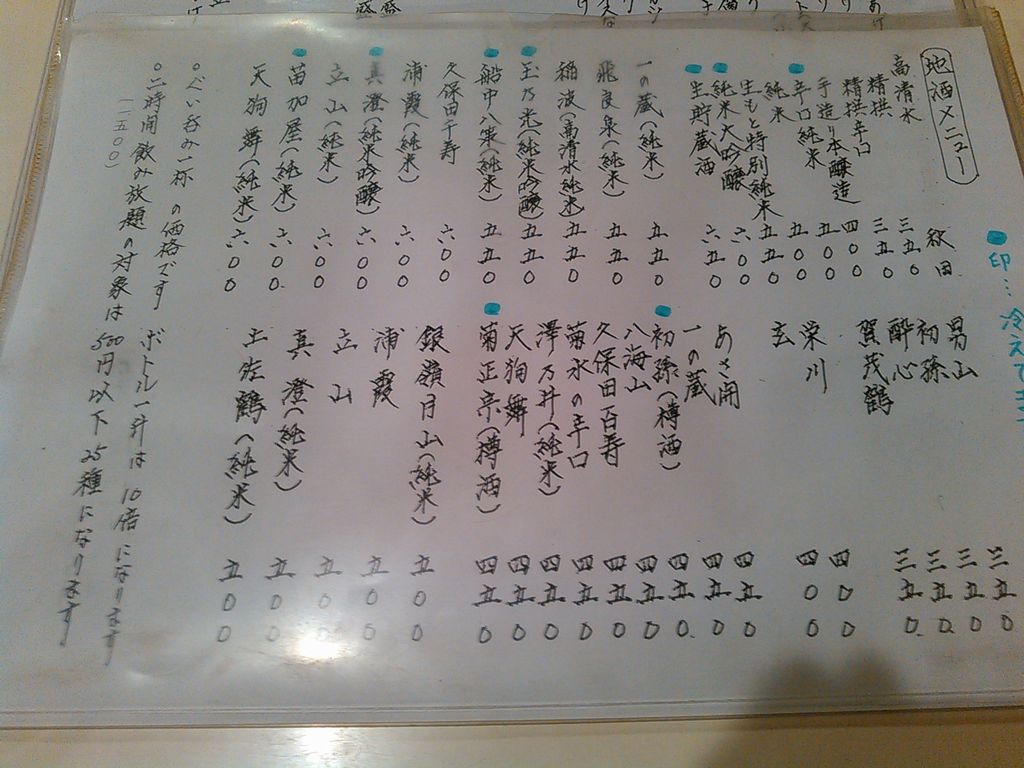 印…冷えてます
地酒メニュー
秋田
高清水
精撰 三五〇
精撰辛口 三五〇
手造り本醸造 四〇〇
辛口純米 五〇〇
純米 五〇〇
生もと特別純米 五五〇
純米大吟醸 六〇〇
生貯蔵酒 六五〇
一の蔵(純米) 五五〇
飛良泉(純米) 五五〇
稲波(高清水純米) 五五〇
玉乃光(純米吟醸) 五五〇
船中八策(純米) 五五〇
久保田千寿 六〇〇
浦霞(純米) 六〇〇
真澄(純米吟醸) 六〇〇
立山(純米) 六〇〇
苗加屋(純米) 六〇〇
天狗舞(純米) 六〇〇
男山 三五〇
初孫 三五〇
酔心 三五〇
賀茂鶴 三五〇
栄川 四〇〇
玄 四〇〇
あさ開 四五〇
一の蔵 四五〇
初孫(樽酒) 四五〇
八海山 四五〇
久保田百寿 四五〇
菊水の辛口 四五〇
澤乃井(純米) 四五〇
天狗舞 四五〇
菊正宗(樽酒) 四五〇
銀嶺月山(純米) 五〇〇
浦霞 五〇〇
立山 五〇〇
真澄(純米) 五〇〇
土佐鶴(純米) 五〇〇
○ぐい呑み一杯の価格です ボトル一升は10倍になります
○二時間飲み放題の対象は500円以下25種になります
(一五〇〇)